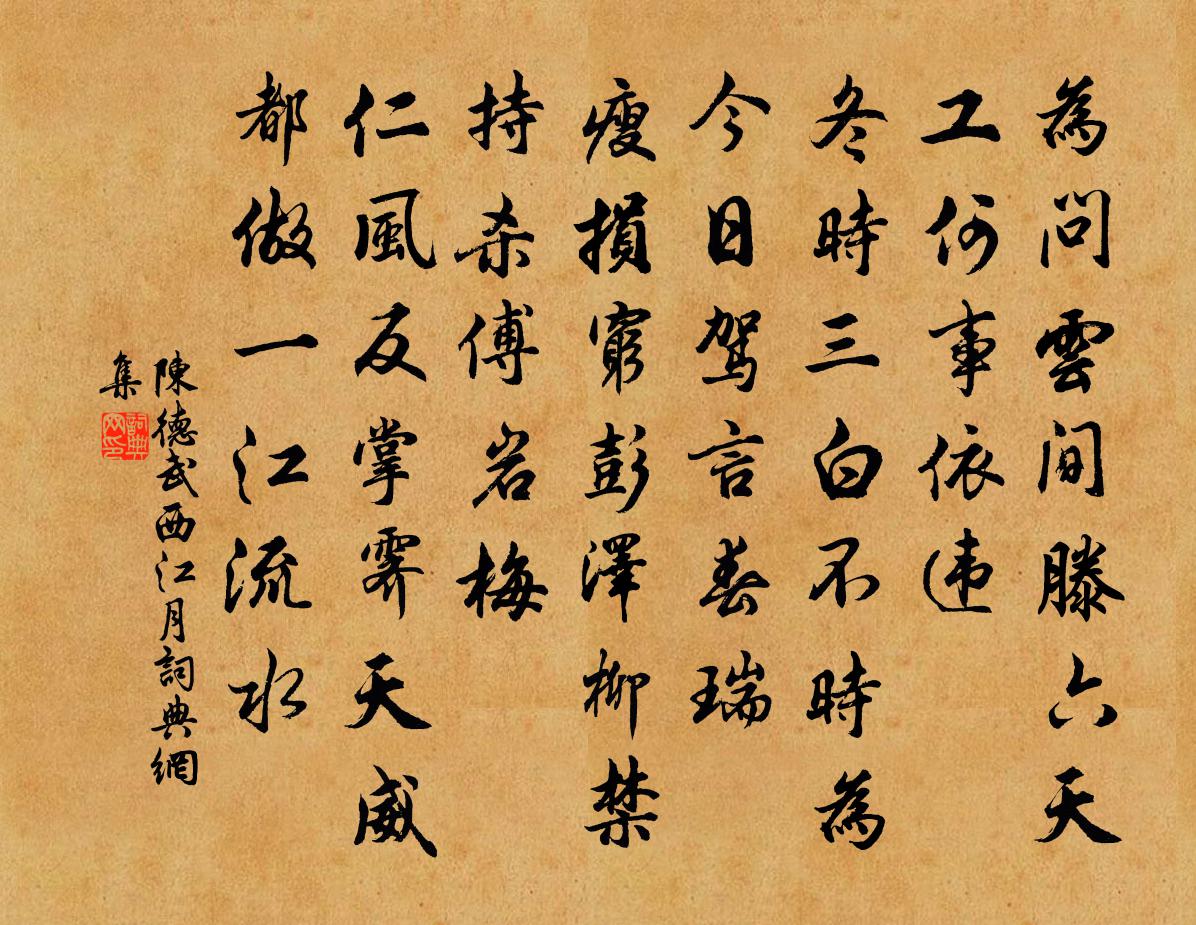 為問雲間滕六天
工何事依違
冬時三白不時為
今日駕言春瑞
瘦損窮彭澤柳禁
持杀傅岩梅
仁風反掌霽天威
都做一江流水
陳德武西江月詞典網
集
詞典
网印